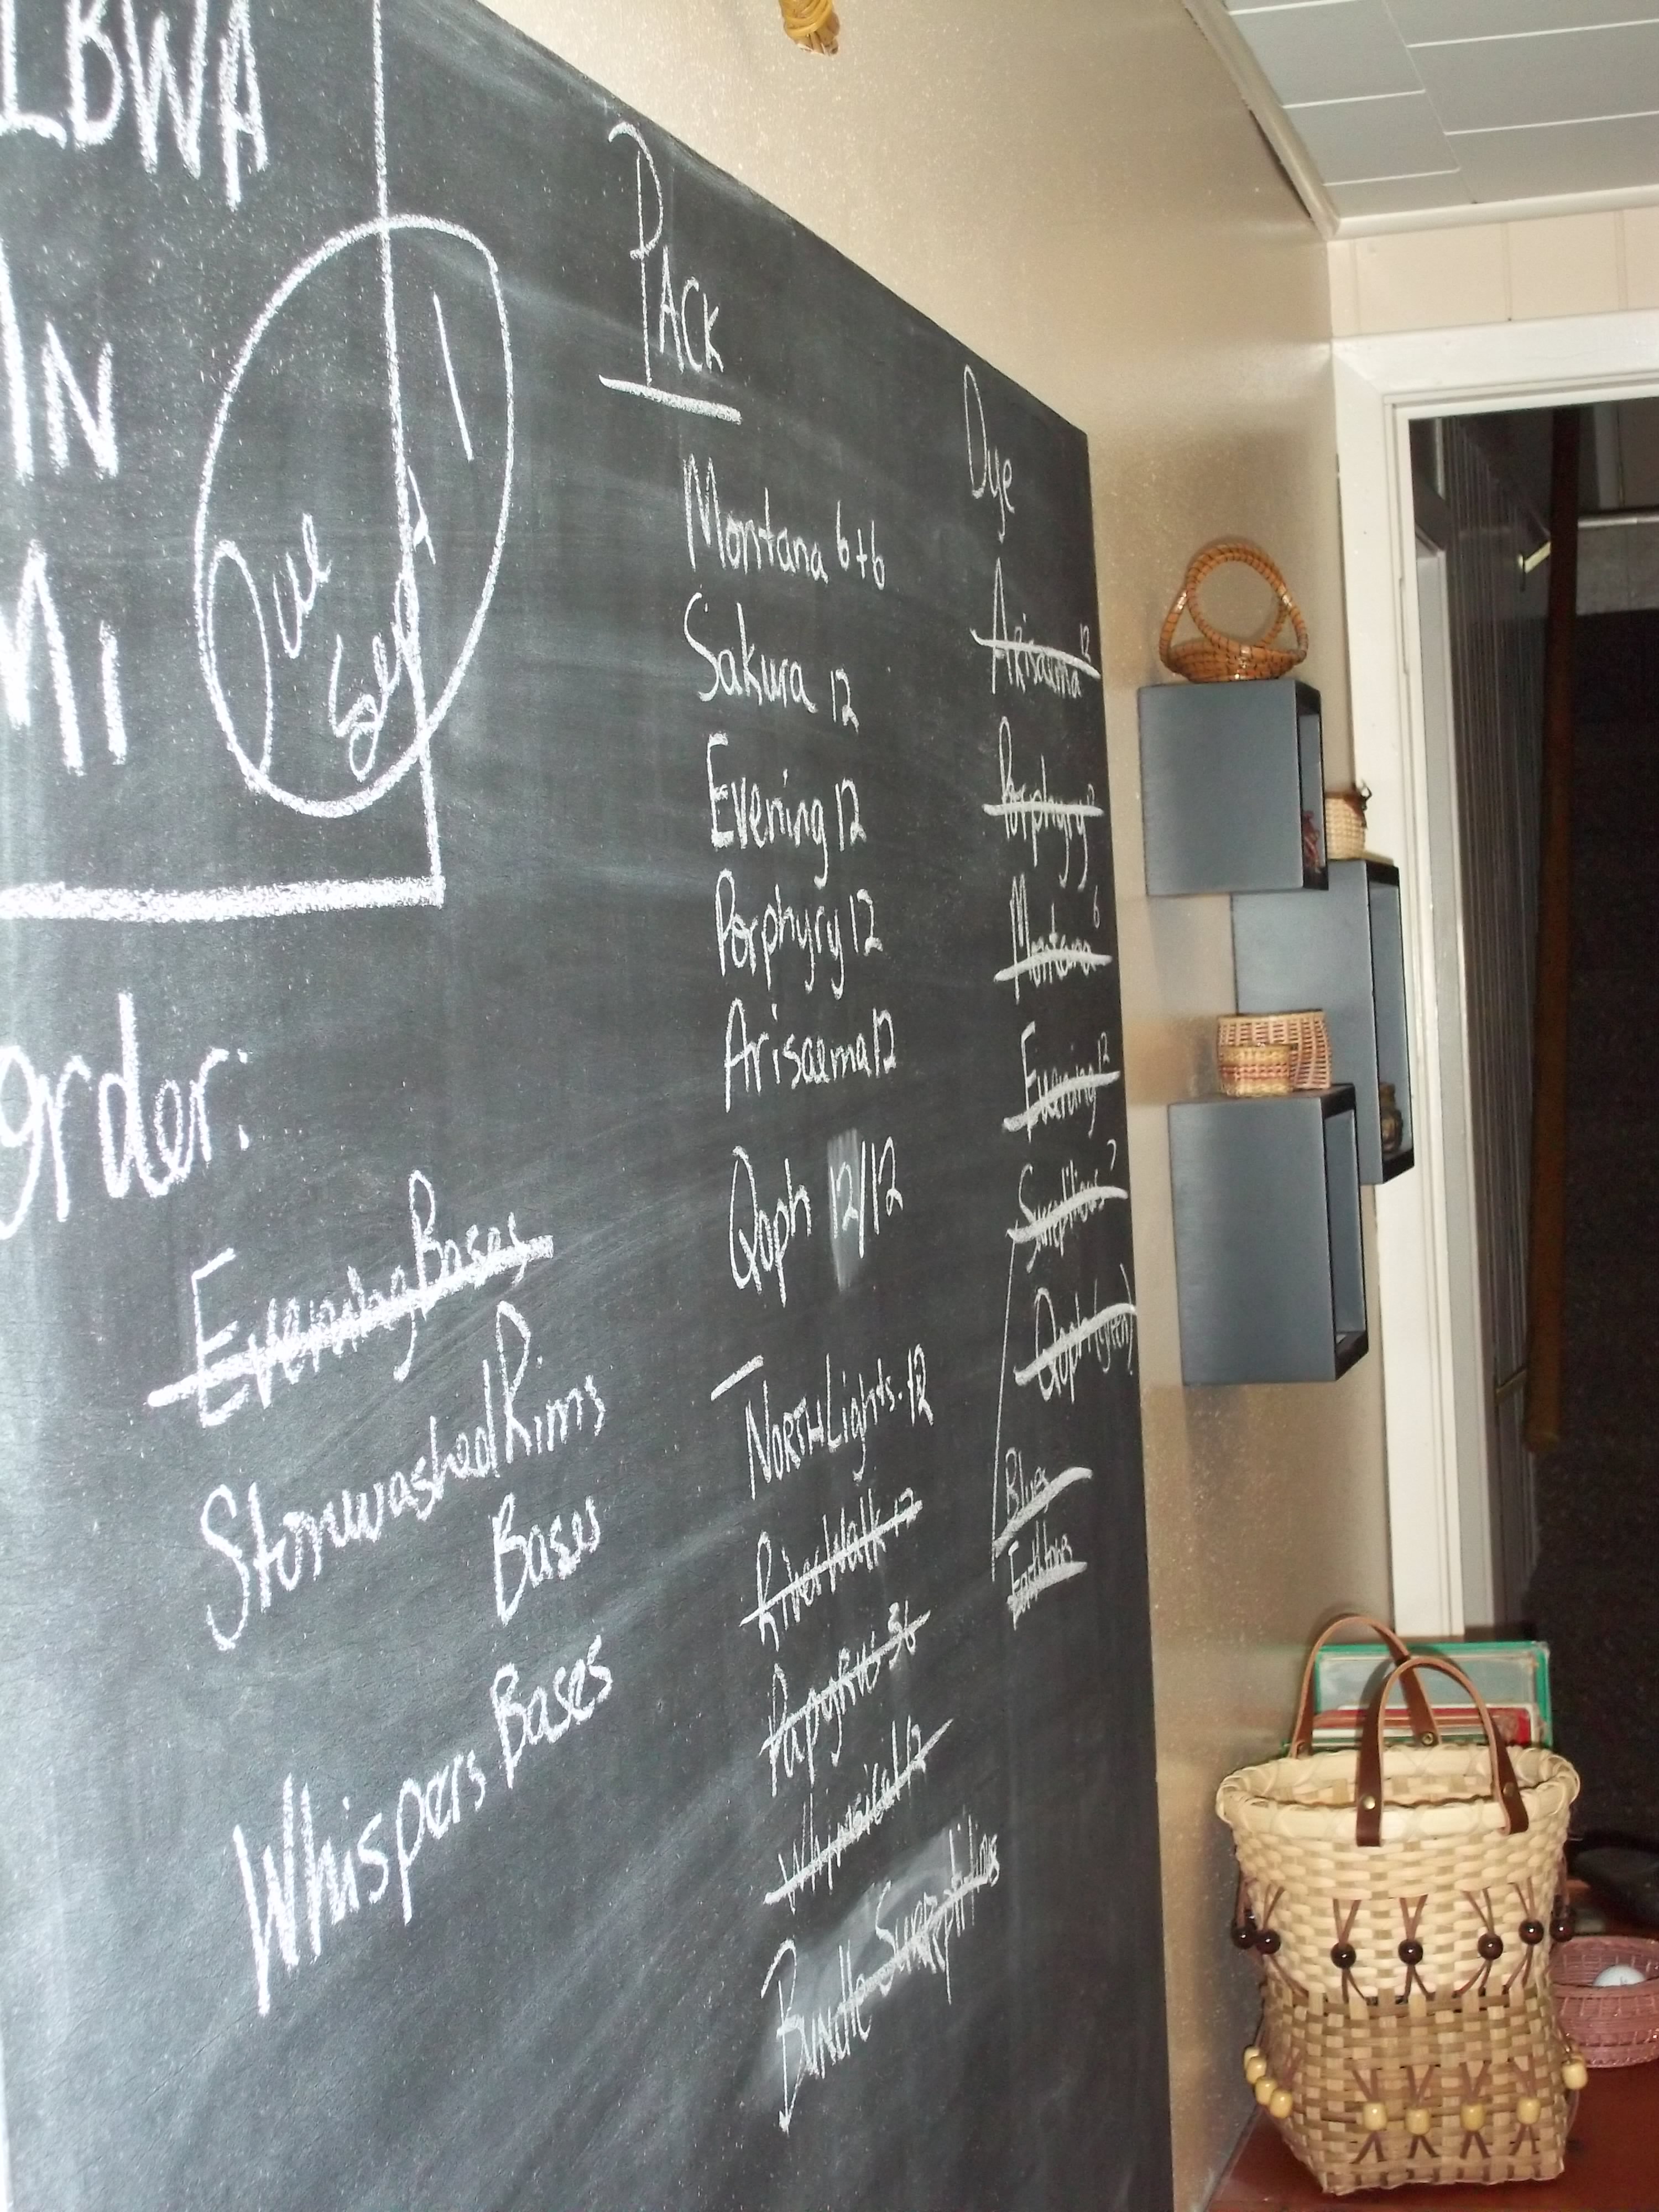 LBWA
IN
Mi
Due
Sept 1
order:
Evening Bases
Stonwashed Rims
Bases
Whispers Bases
PACK
Montana 6+6
Sakura 12
Evening 12
Porphyry 12
Arisaema 12
Qoph 12/12
NORTH Lights. 12
River Walk 12
Papyrus 36
Whymsical 12
Bundle Surrptilios
Dye
Arisaema 12
Porphyry
Montana 6
Evening 12
Qoph (green)
Blue